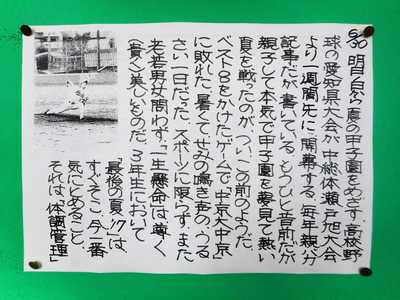 6/30 明日から夏の甲子園をめざす、高校野
球の愛知県大会が、中総体瀬戸旭大会
より一週間先に、開幕する。毎年親分
記事だが書いている。もうひと昔前だが
親子して本気で甲子園を夢見て熱い
夏を戦ったのが、つい、この前のようだ。
ベスト8をかけたゲームで、中京大中京
に敗れた。暑くて、せみの鳴き声の、うる
さい一日だった。スポーツに限らず、また
老若男女問わず、「一生懸命」は尊く
(貴く)美しいものだ。3年生において
「最後の夏'17」は
すぐそこ。今一番
気にとめること、
それは、「体調管理」